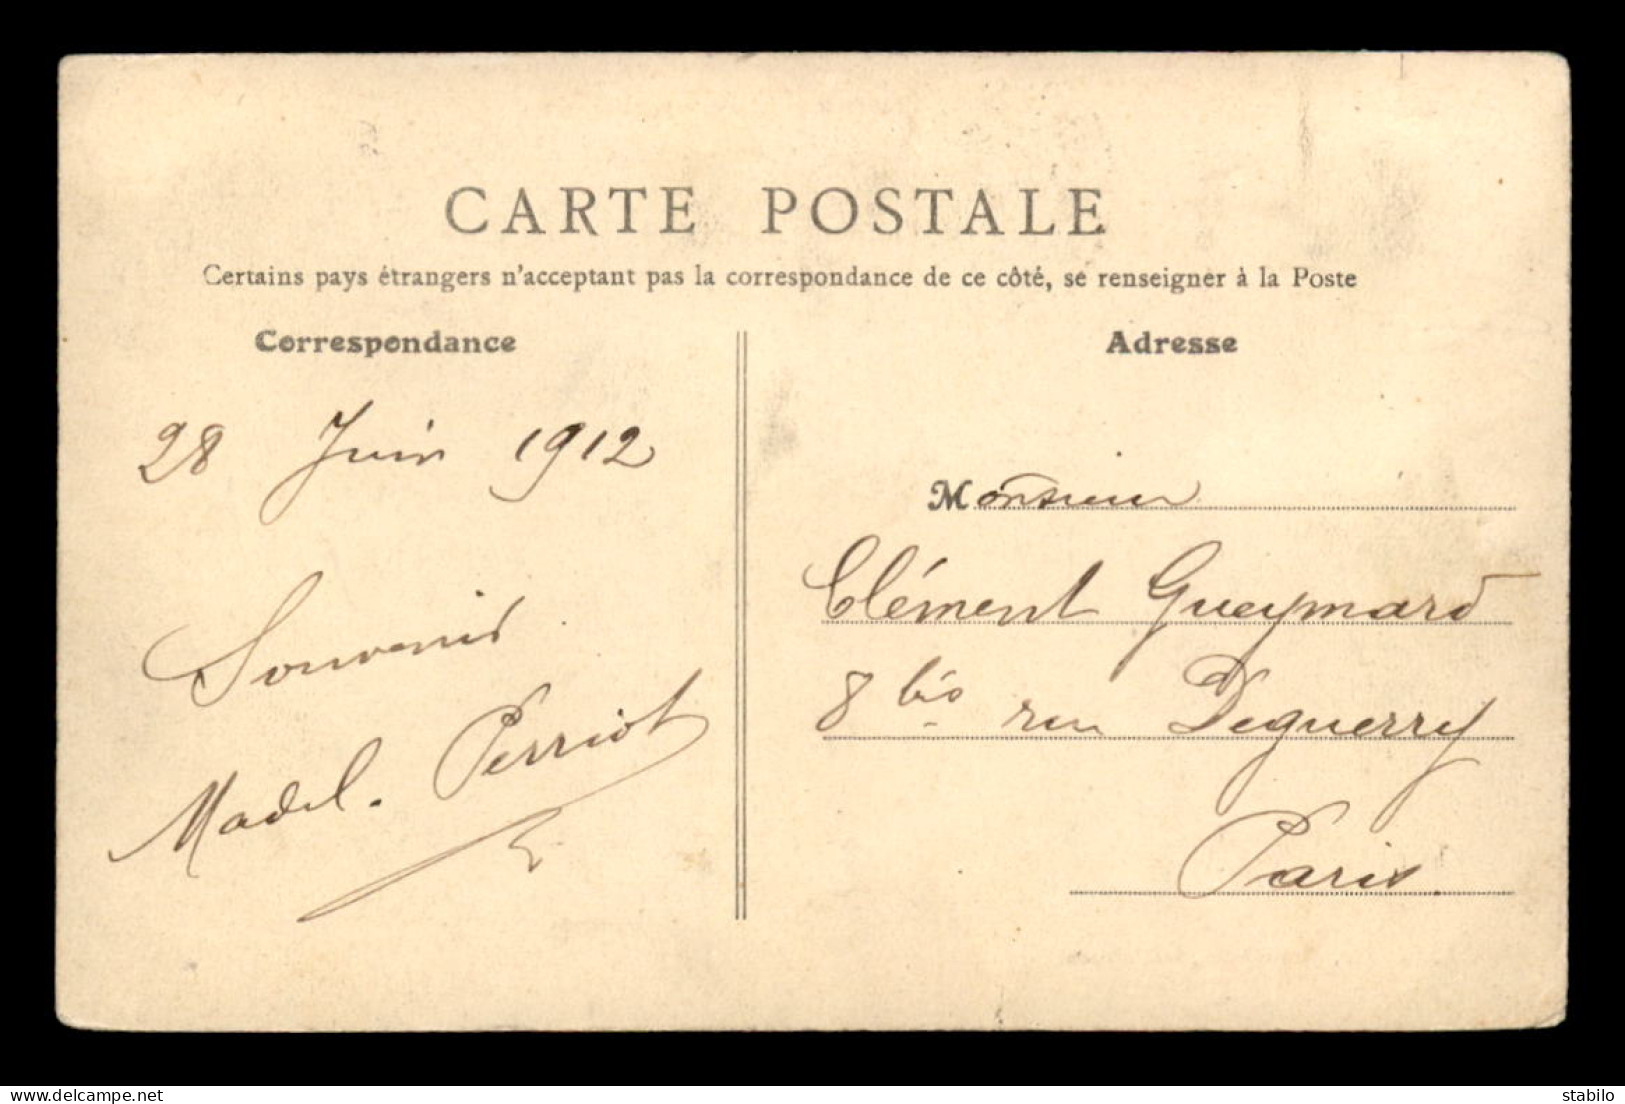 CARTE POSTALE
Certains pays étrangers n'acceptant pas la correspondance de ce côté, se renseigner à la Poste
Correspondance
28 Juin 1912
Souvenir
Madel. Perriot
Adresse
Monsieur
Clément Gueymard
8 bis rue Deguerry
Paris.
delcampe.net
stabilo